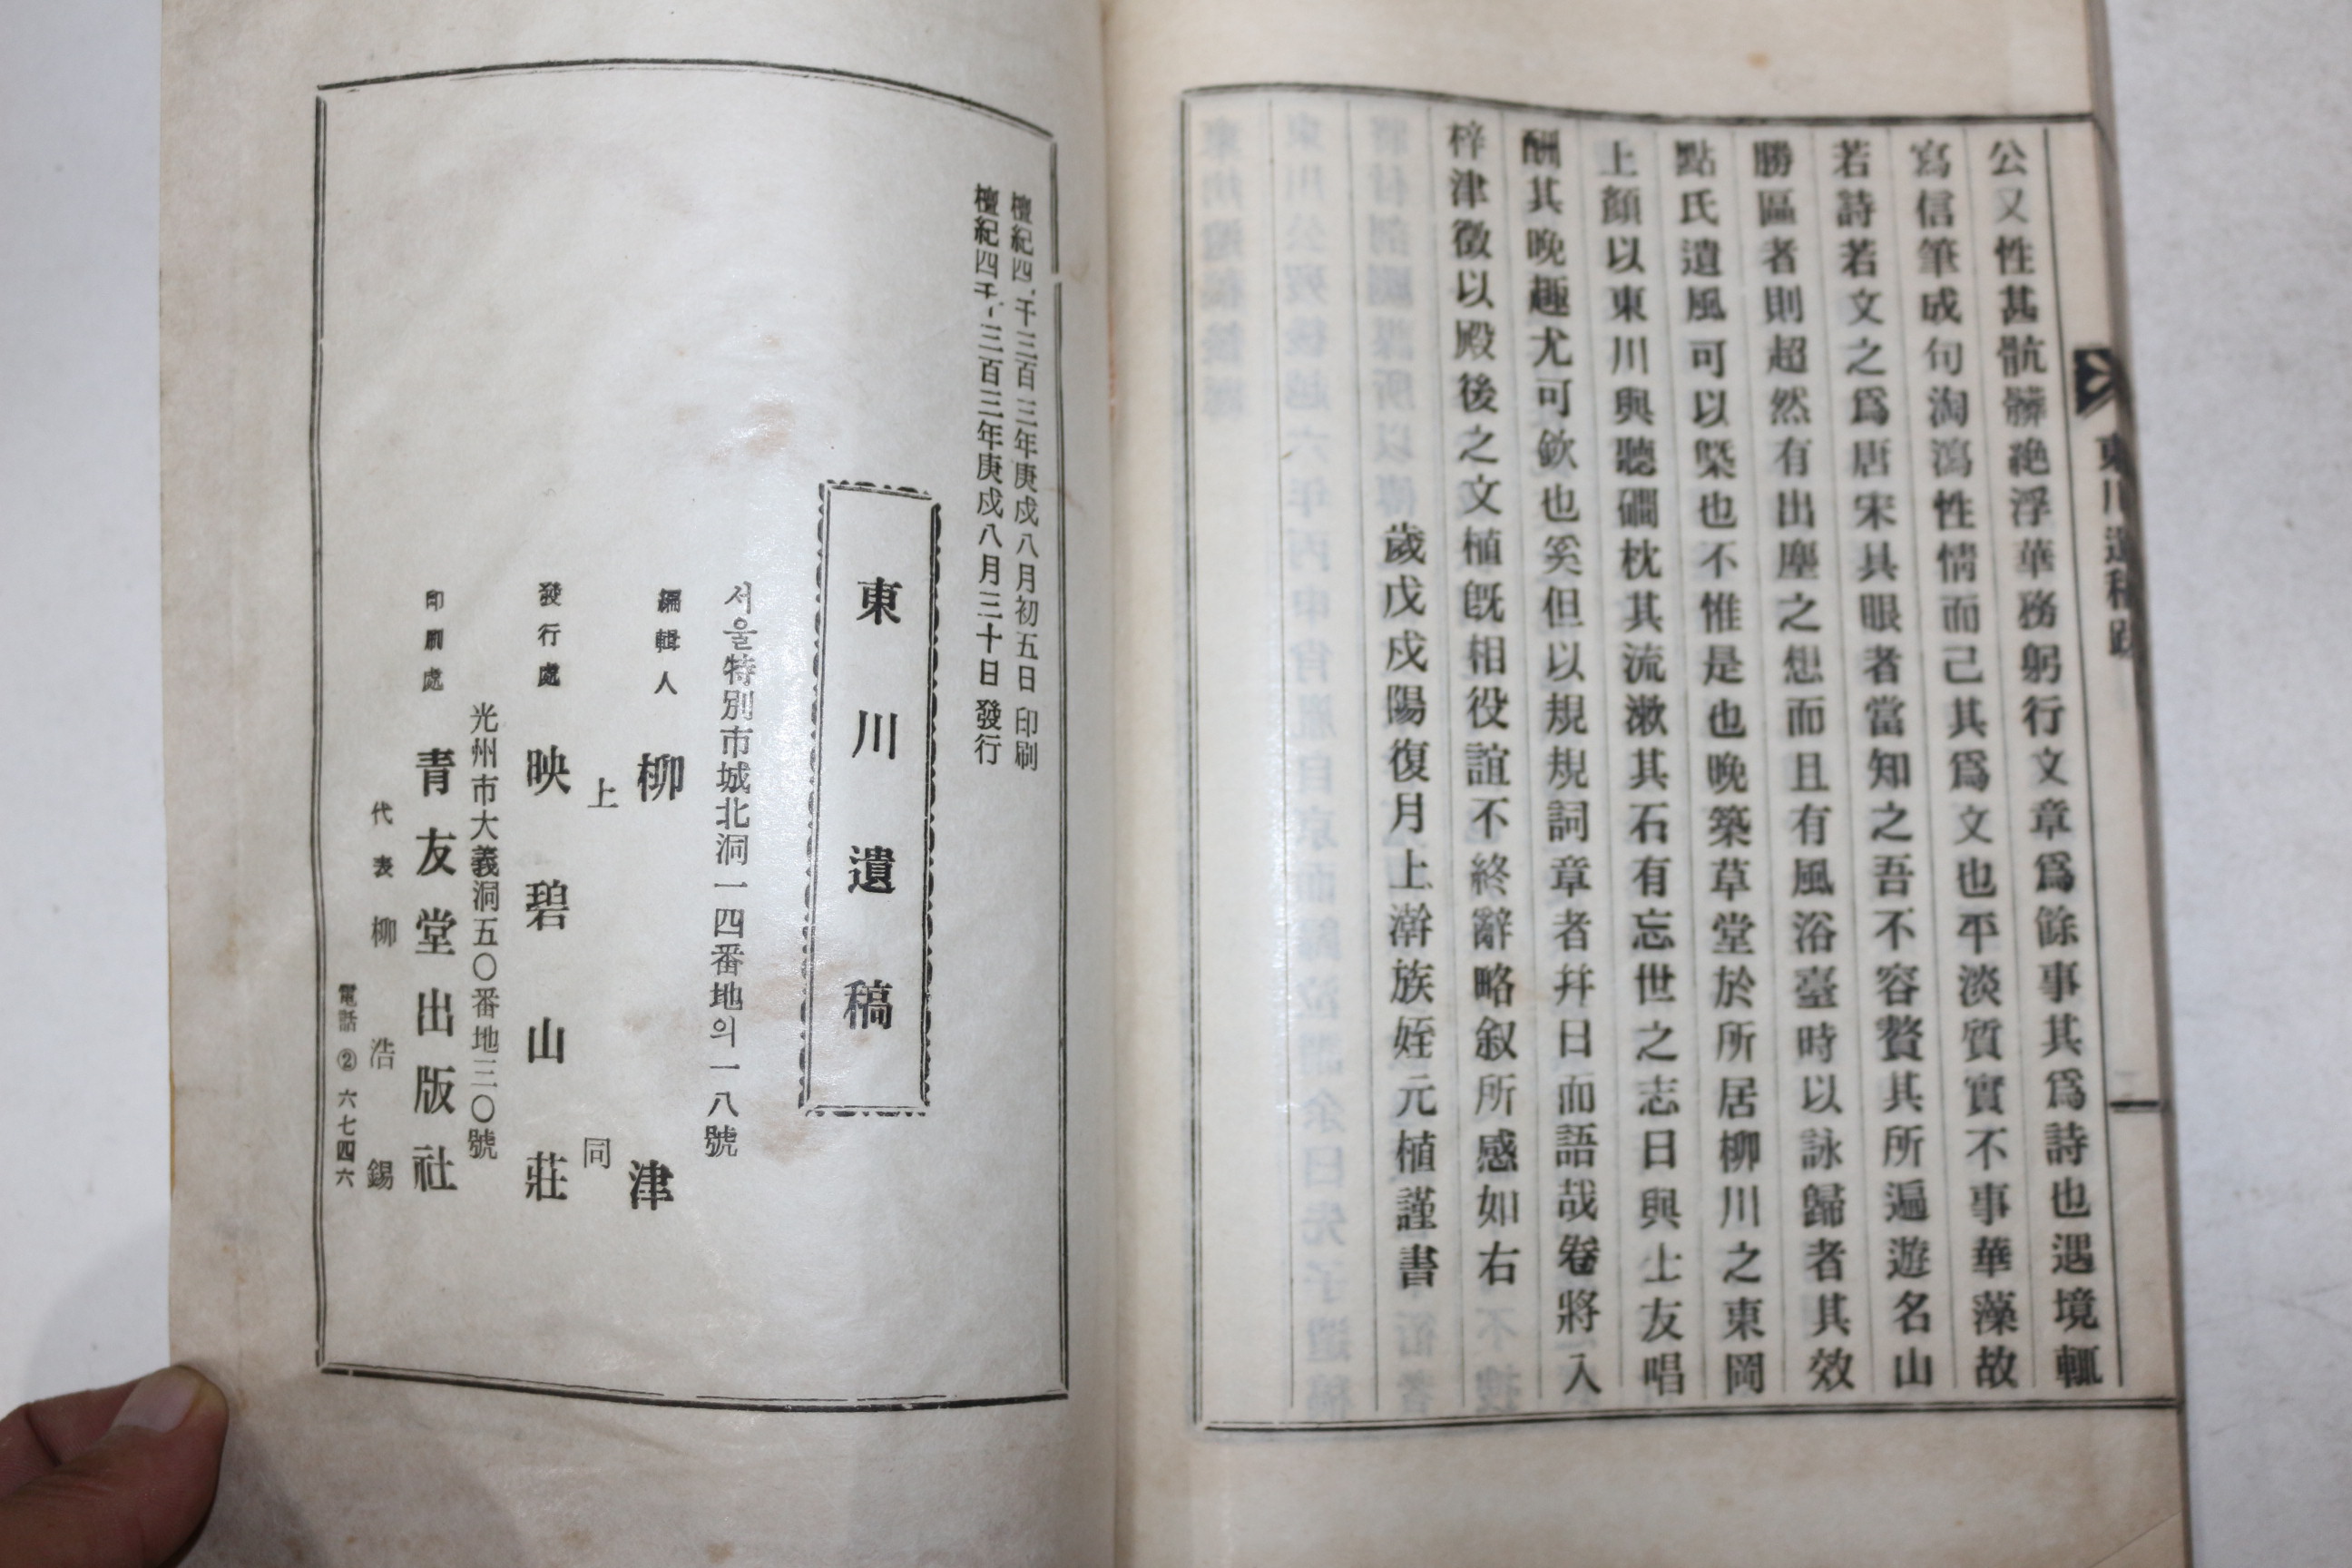 公又性甚骯髒絶浮華務躬行文章爲餘事其爲詩也遇境輒
寫信筆成句淘瀉性情而己其爲文也平淡質實不事華藻故
若詩若文之爲唐宋具眼者當知之吾不容贅其所遍遊名山
勝區者則超然有出塵之想而且有風浴臺時以詠歸者其效
點氏遺風可以槩也不惟是也晩築草堂於所居柳川之東岡
上顏以東川與聽磵枕其流漱其石有忘世之志日與士友唱
酬其晩趣尤可欽也奚但以規規詞章者幷日而語哉卷將入
梓津徵以殿後之文植旣相役誼不終辭略叙所感如右
歲戊戌陽復月上澣族姪元植謹書
東川遺稿跋
二
檀紀四千三百三年庚戌八月初五日 印刷
檀紀四千三百三年庚戌八月三十日 發行
東川遺稿
서울特別市城北洞一四番地의一八號
編輯人 柳津
上同
發行處 映碧山莊
光州市大義洞五〇番地三〇號
印刷處 靑友堂出版社
代表 柳浩錫
電話 ② 六七四六